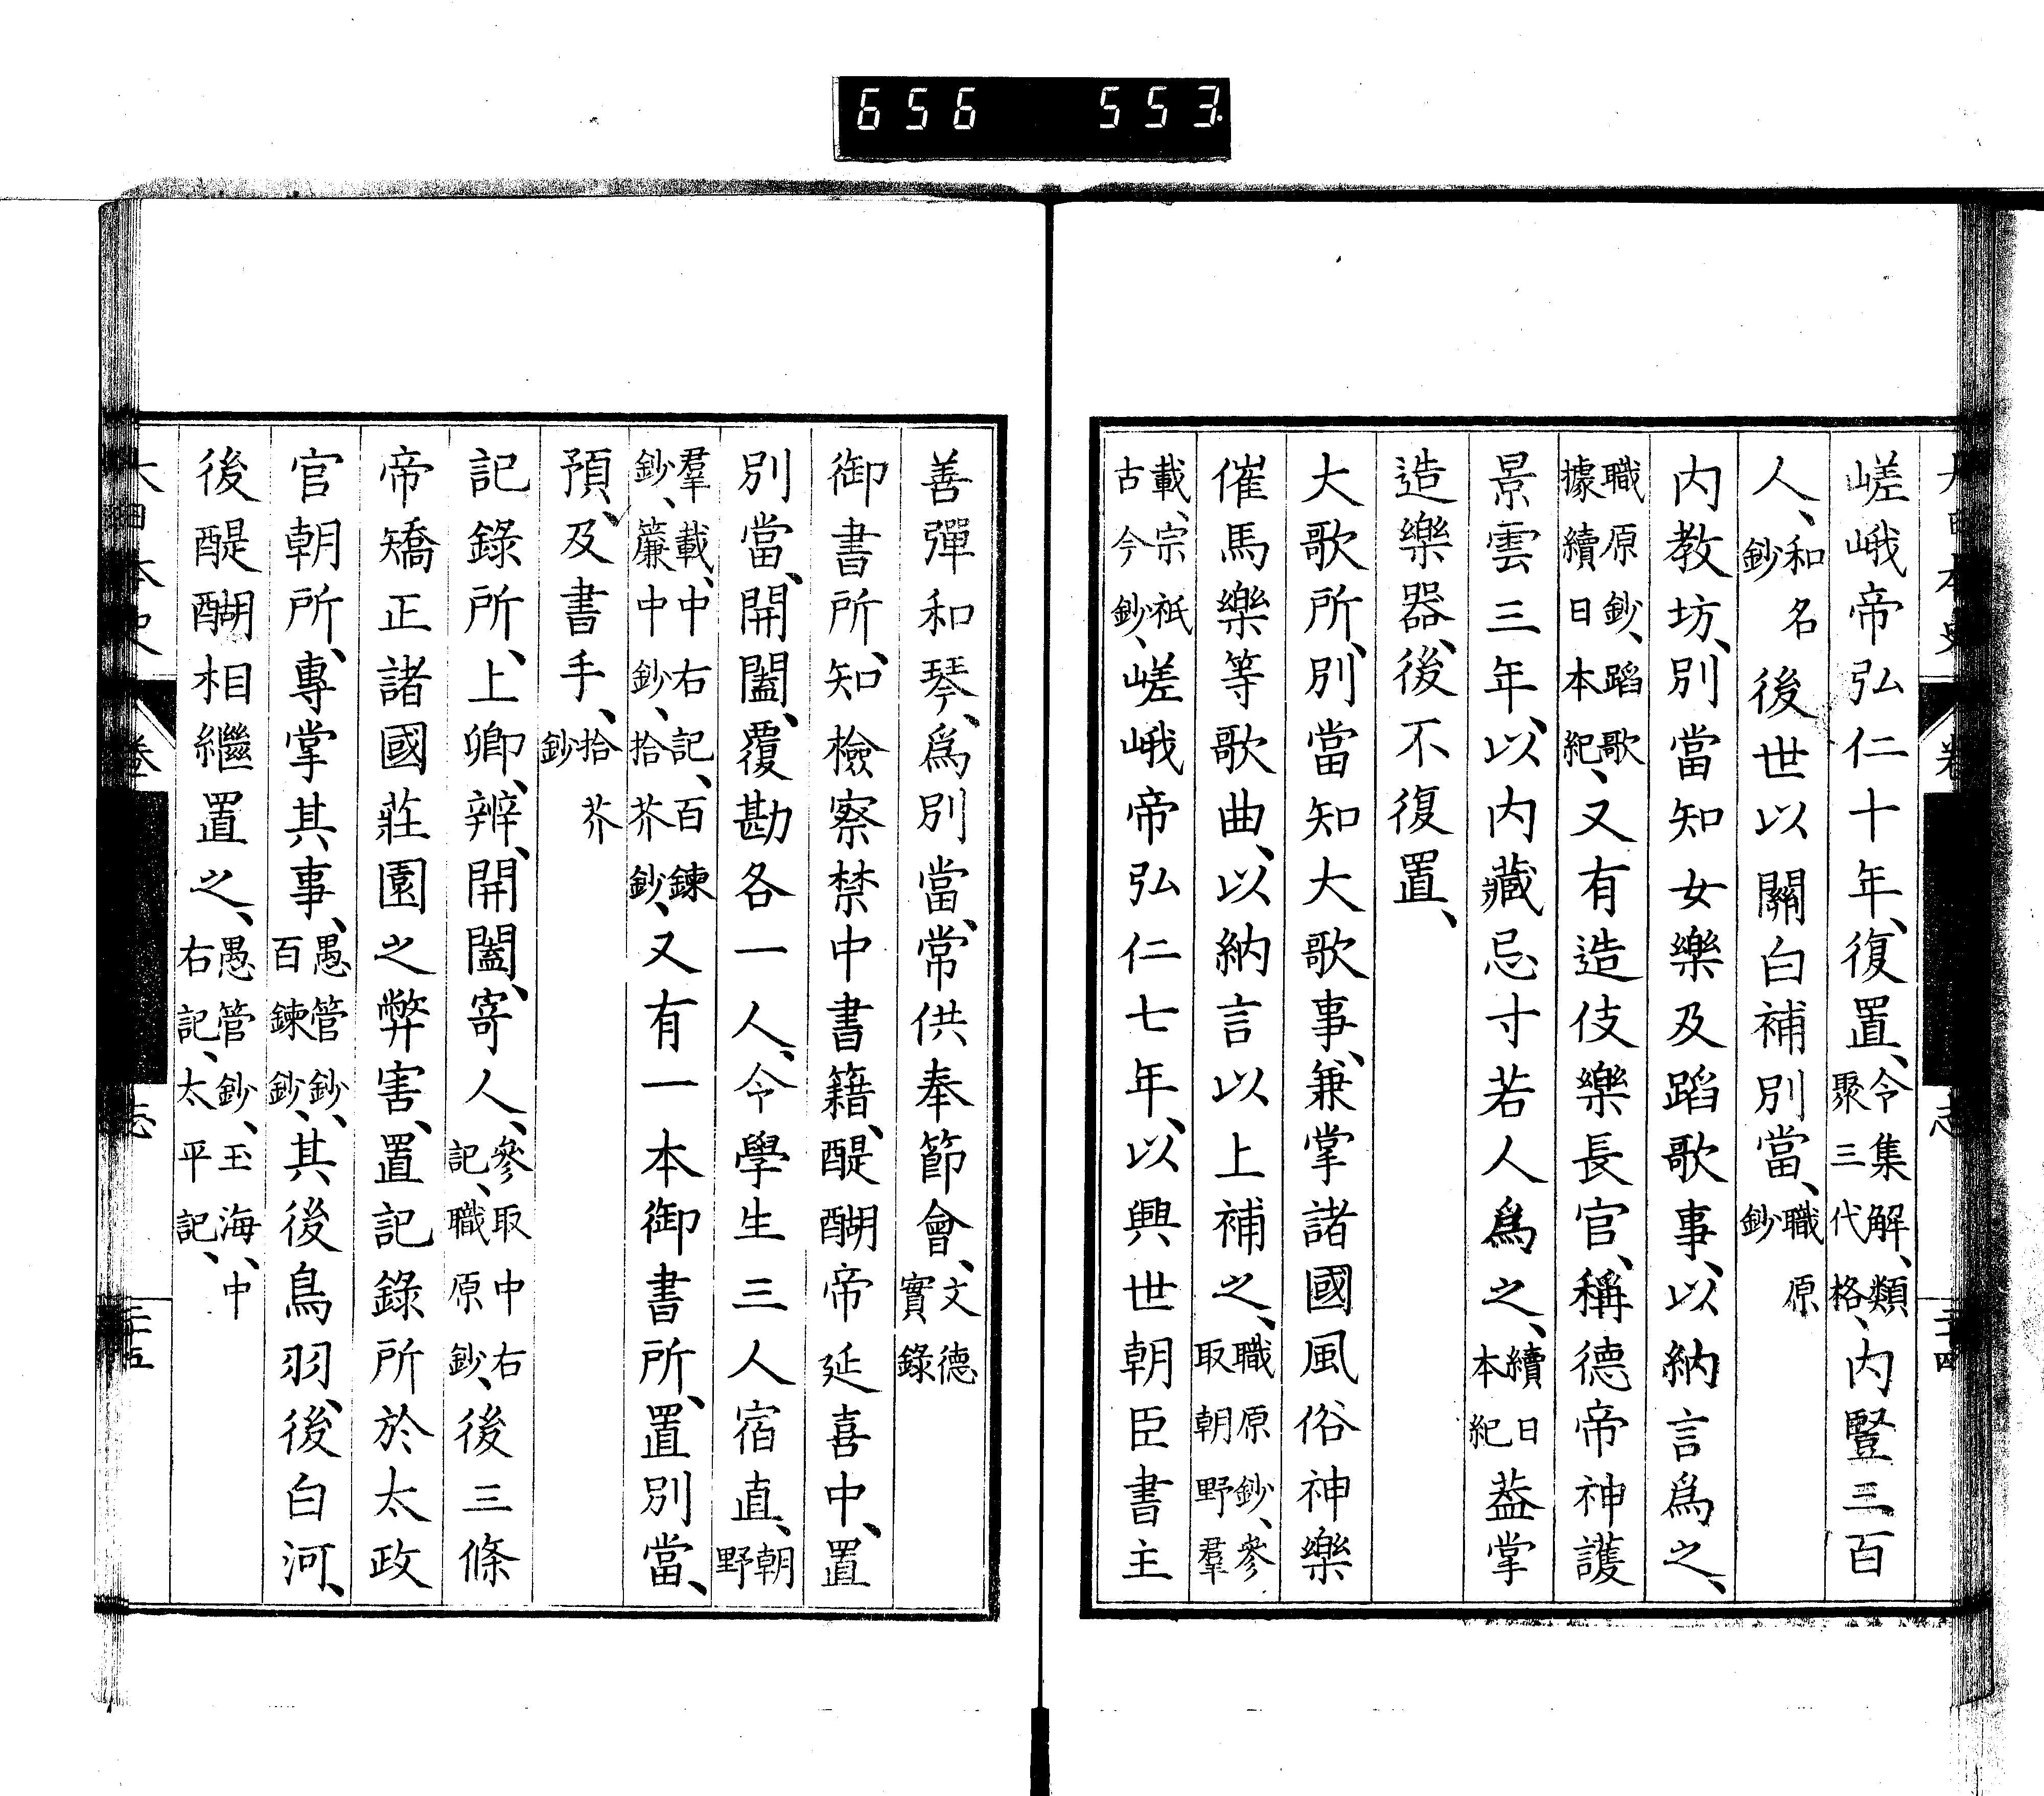 656 553
嵯峨帝弘仁十年、復置、令集解、類聚三代格、内豎三百
人、和名鈔後世以關白補別當、職原鈔
内教坊、別當知女樂及蹈歌事、以納言爲之、
職原鈔、蹈歌據續日本紀、又有造伎樂長官、稱德帝神護
景雲三年、以内藏忌寸若人爲之、續日本紀葢掌
造樂器、後不復置、
大歌所、別當知大歌事、兼掌諸國風俗神樂
催馬樂等歌曲、以納言以上補之、職原鈔、參取朝野羣
載、宗祇古今鈔、嵯峨帝弘仁七年、以興世朝臣書主
善彈和琴、爲別當、常供奉節會、文德實錄
御書所、知檢察禁中書籍、醍醐帝延喜中、置
別當、開闔、覆勘各一人、令學生三人宿直、朝野
羣載、中右記、百鍊鈔、簾中鈔、拾芥鈔、又有一本御書所、置別當、
預、及書手、拾芥鈔
記錄所、上卿、辨、開闔、寄人、參取中右記、職原鈔、後三條
帝矯正諸國莊園之弊害、置記錄所於太政
官朝所、專掌其事、愚管鈔、百鍊鈔、其後鳥羽、後白河、
後醍醐相繼置之、愚管鈔、玉海、中右記、太平記、